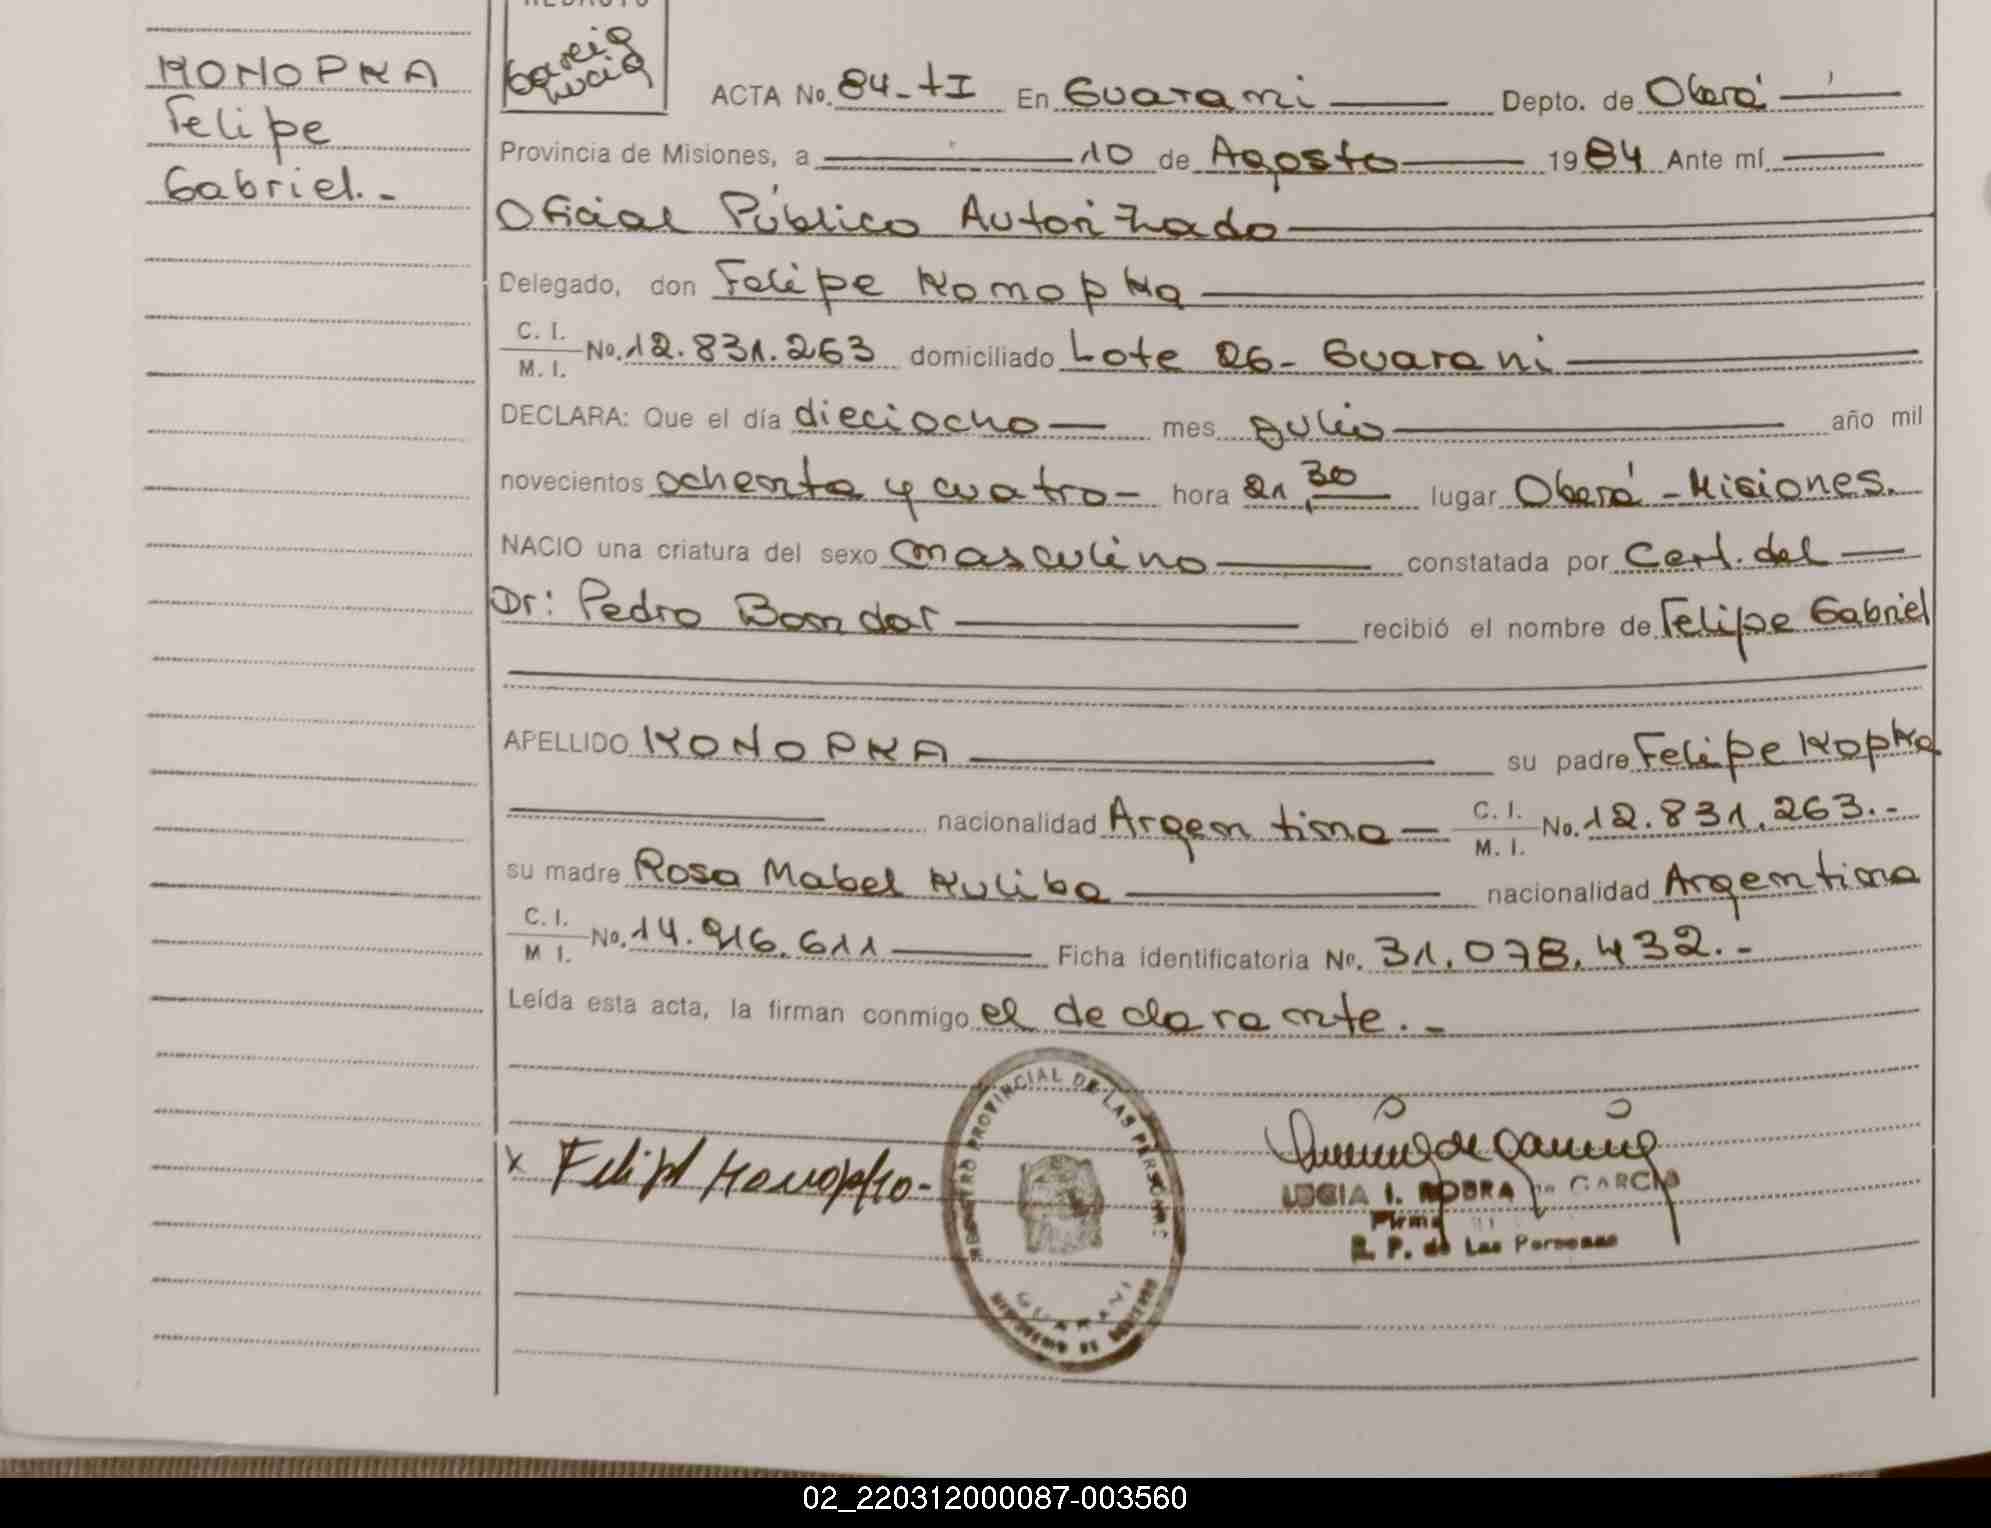 KONOPKA
Felipe
Gabriel.-
REDACTO
García
Lucia
ACTA No. 84-tI En Guarani Depto. de Oberá
Provincia de Misiones, a 10 de Agosto 1984 Ante mí
Oficial Público Autorizado
Delegado, don Felipe Konopka
C. I.
M. I. No. 12.831.263 domiciliado Lote 26- Guarani
DECLARA: Que el día dieciocho mes Julio año mil
novecientos ochenta y cuatro- hora 21,30 lugar Oberá -Misiones.
NACIO una criatura del sexo masculino constatada por Cert. del
Dr: Pedro Bondar recibió el nombre de Felipe Gabriel
APELLIDO KONOPKA su padre Felipe Kopka
nacionalidad Argentina C. I.
M. I. No. 12.831.263.-
su madre Rosa Mabel Kuliba nacionalidad Argentina
C. I.
M I. No. 14.916.611 Ficha identificatoria Nº. 31.078.432.-
Leída esta acta, la firman conmigo el declarante.-
x Felipe Konopka-
REGISTRO PROVINCIAL DE LAS PERSONAS
GUARANI
LUCIA I. RODRA de GARCIA
Firma
R. P. de Las Personas
02_220312000087-003560